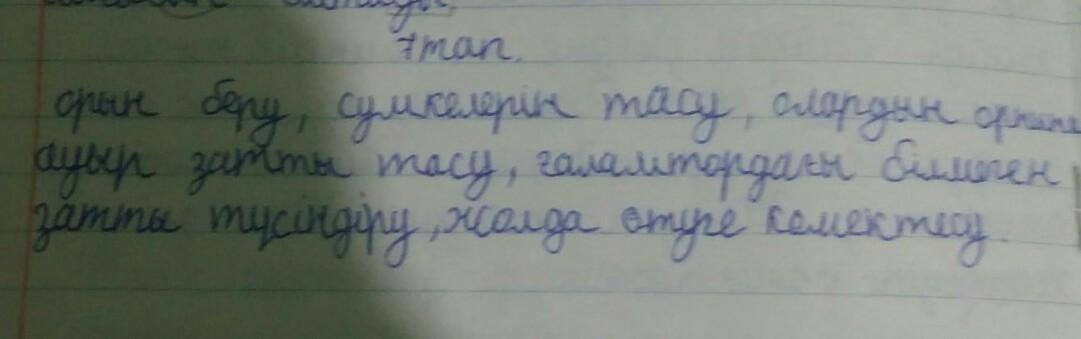 7тап.
орын беру, сумкелерін тасу, олардын орнына
ауыр затты тасу, ғаламтордағы білмеген
затты түсіндіру, жолда өтуге көмектесу.